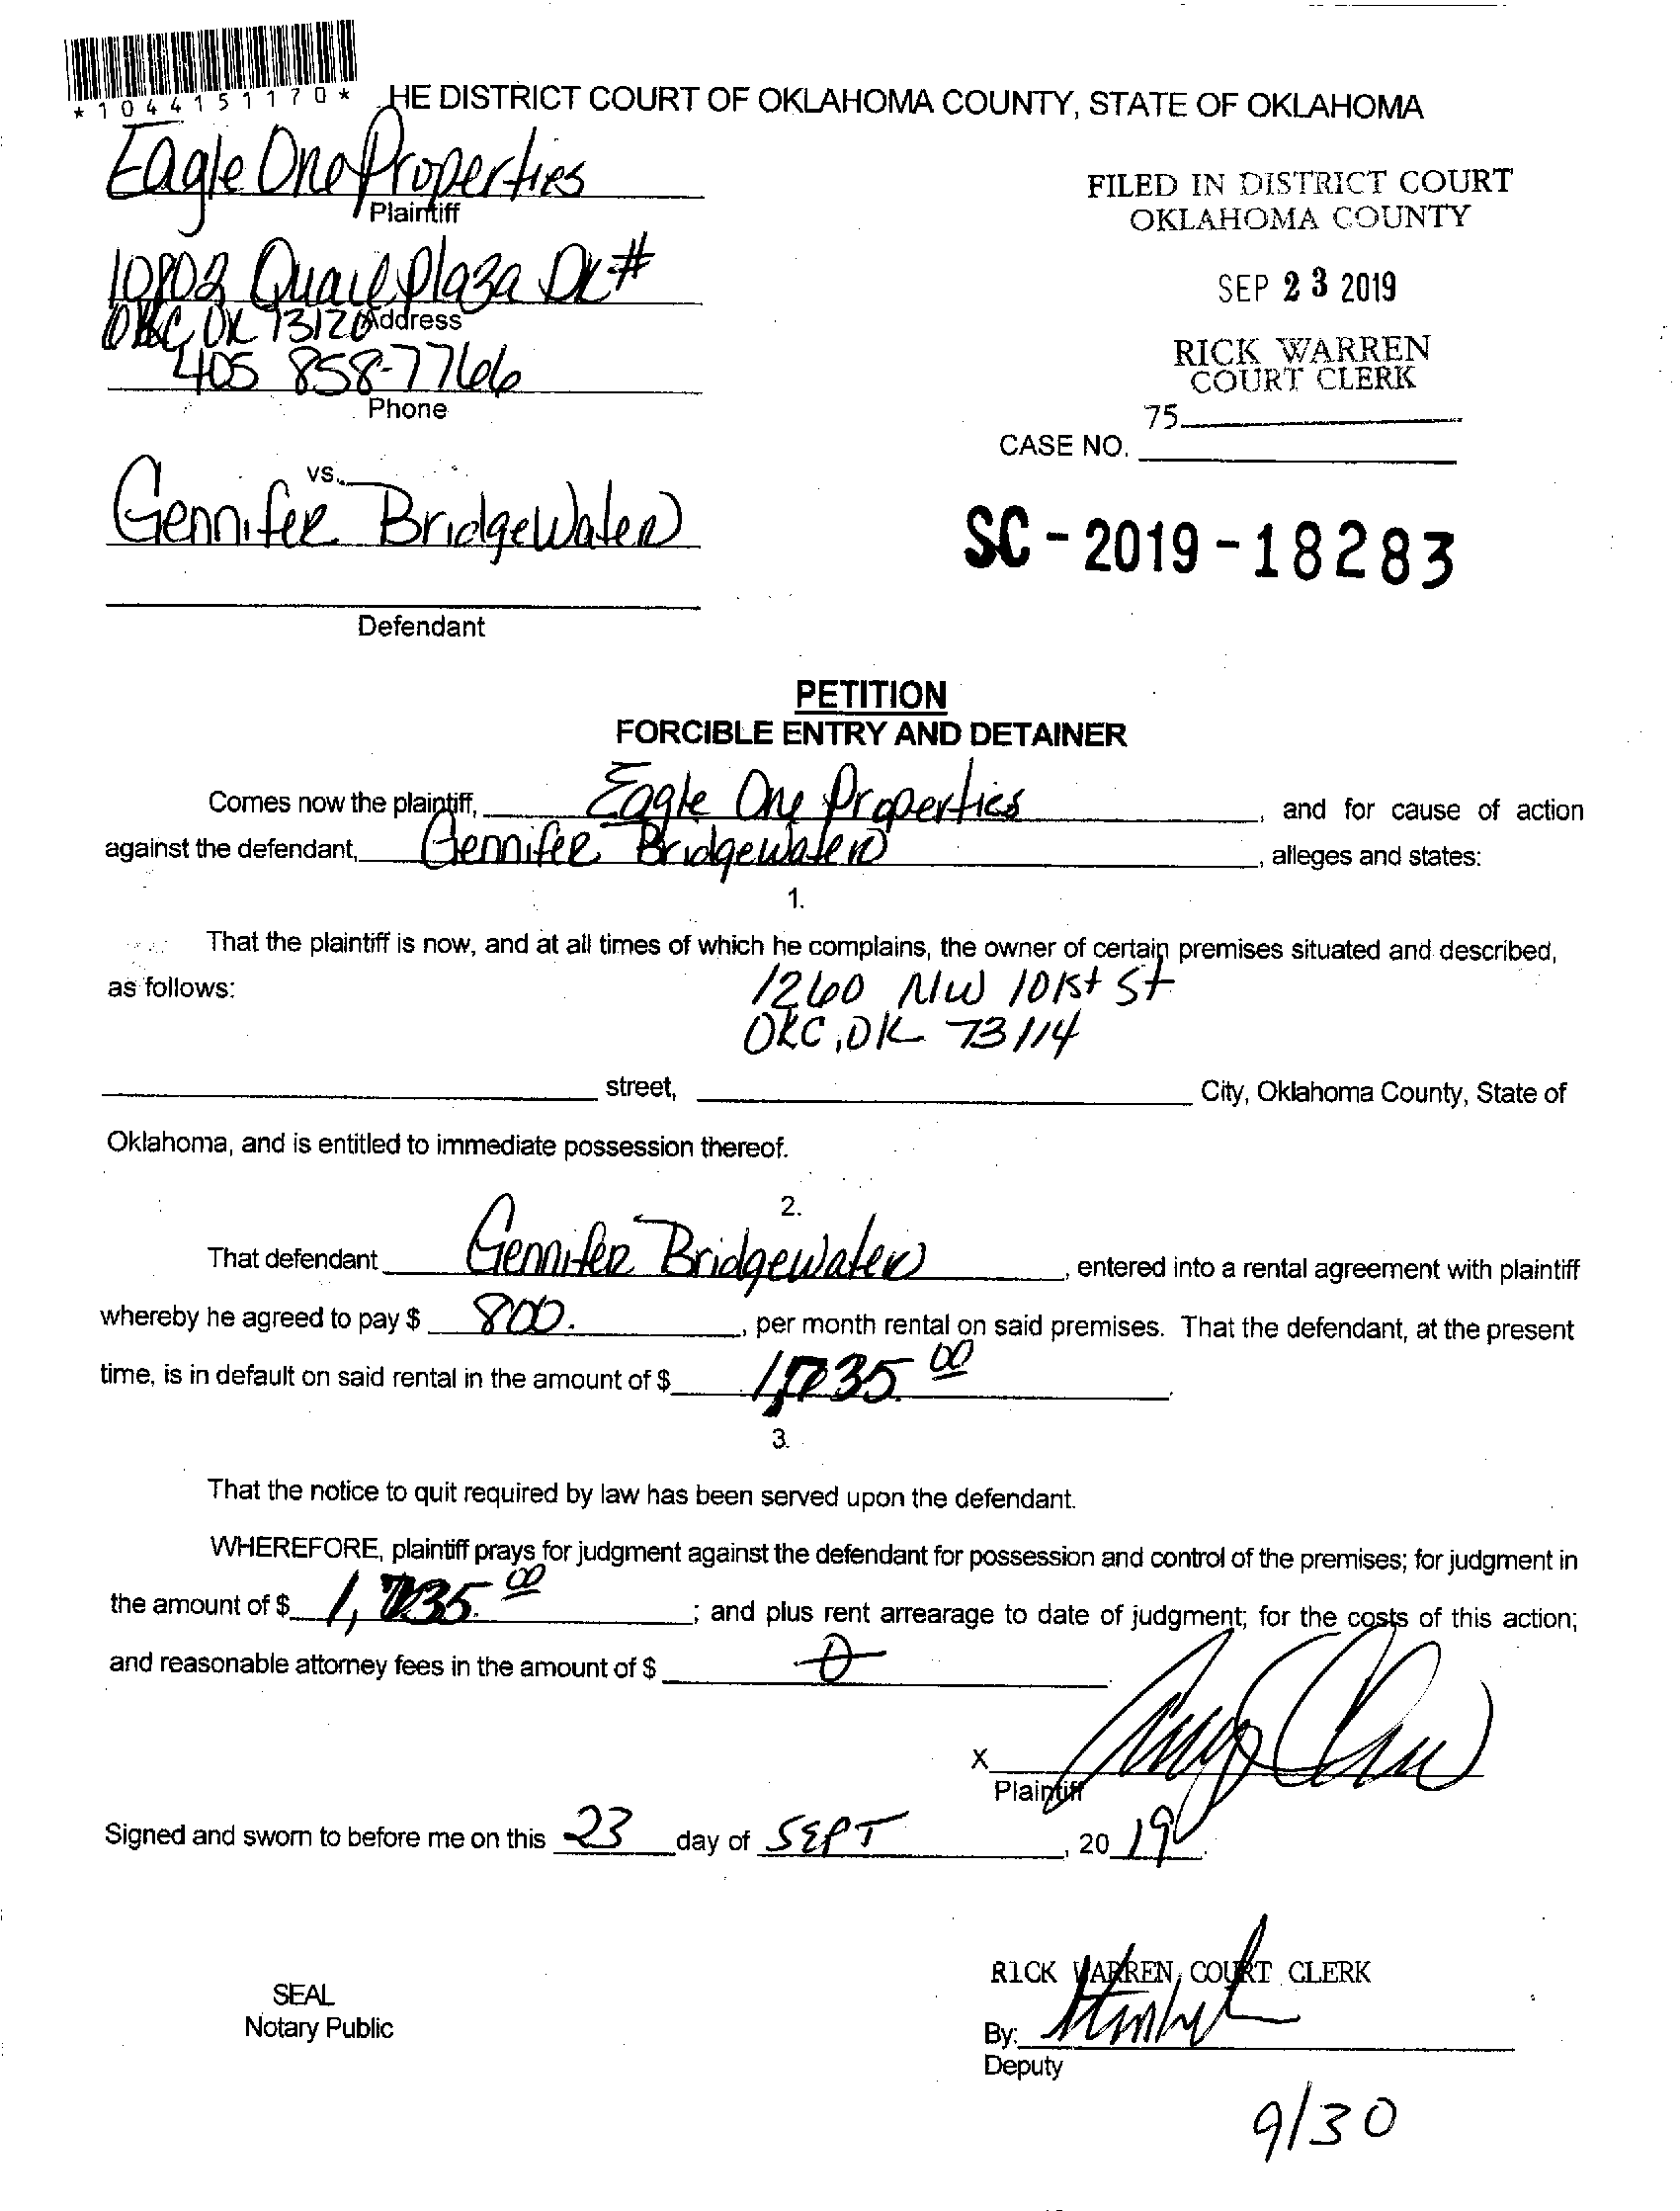 *1044151170*
HE DISTRICT COURT OF OKLAHOMA COUNTY, STATE OF OKLAHOMA
Eagle One Properties
Plaintiff
FILED IN DISTRICT COURT
OKLAHOMA COUNTY
10802 Quail Plaza Dr #
SEP 23 2019
OKC OK 73120
Address
RICK WARREN
COURT CLERK
405 858-7766
Phone
75
CASE NO.
vs.
Gennifer Bridgewater
SC-2019-18283
Defendant
PETITION
FORCIBLE ENTRY AND DETAINER
Comes now the plaintiff, Eagle One Properties, and for cause of action
against the defendant, Gennifer Bridgewater, alleges and states:
1.
That the plaintiff is now, and at all times of which he complains, the owner of certain premises situated and described,
as follows: 1260 NW 101st St
OKC, OK 73114
street, City, Oklahoma County, State of
Oklahoma, and is entitled to immediate possession thereof.
2.
That defendant Gennifer Bridgewater, entered into a rental agreement with plaintiff
whereby he agreed to pay $ 800., per month rental on said premises. That the defendant, at the present
time, is in default on said rental in the amount of $
3.
That the notice to quit required by law has been served upon the defendant.
WHEREFORE, plaintiff prays for judgment against the defendant for possession and control of the premises; for judgment in
the amount of $ ; and plus rent arrearage to date of judgment; for the costs of this action;
and reasonable attorney fees in the amount of $ 0
X
Plaintiff
Signed and sworn to before me on this 23 day of SEPT, 20 19.
RICK WARREN, COURT CLERK
SEAL
Notary Public
By:
Deputy
9/30